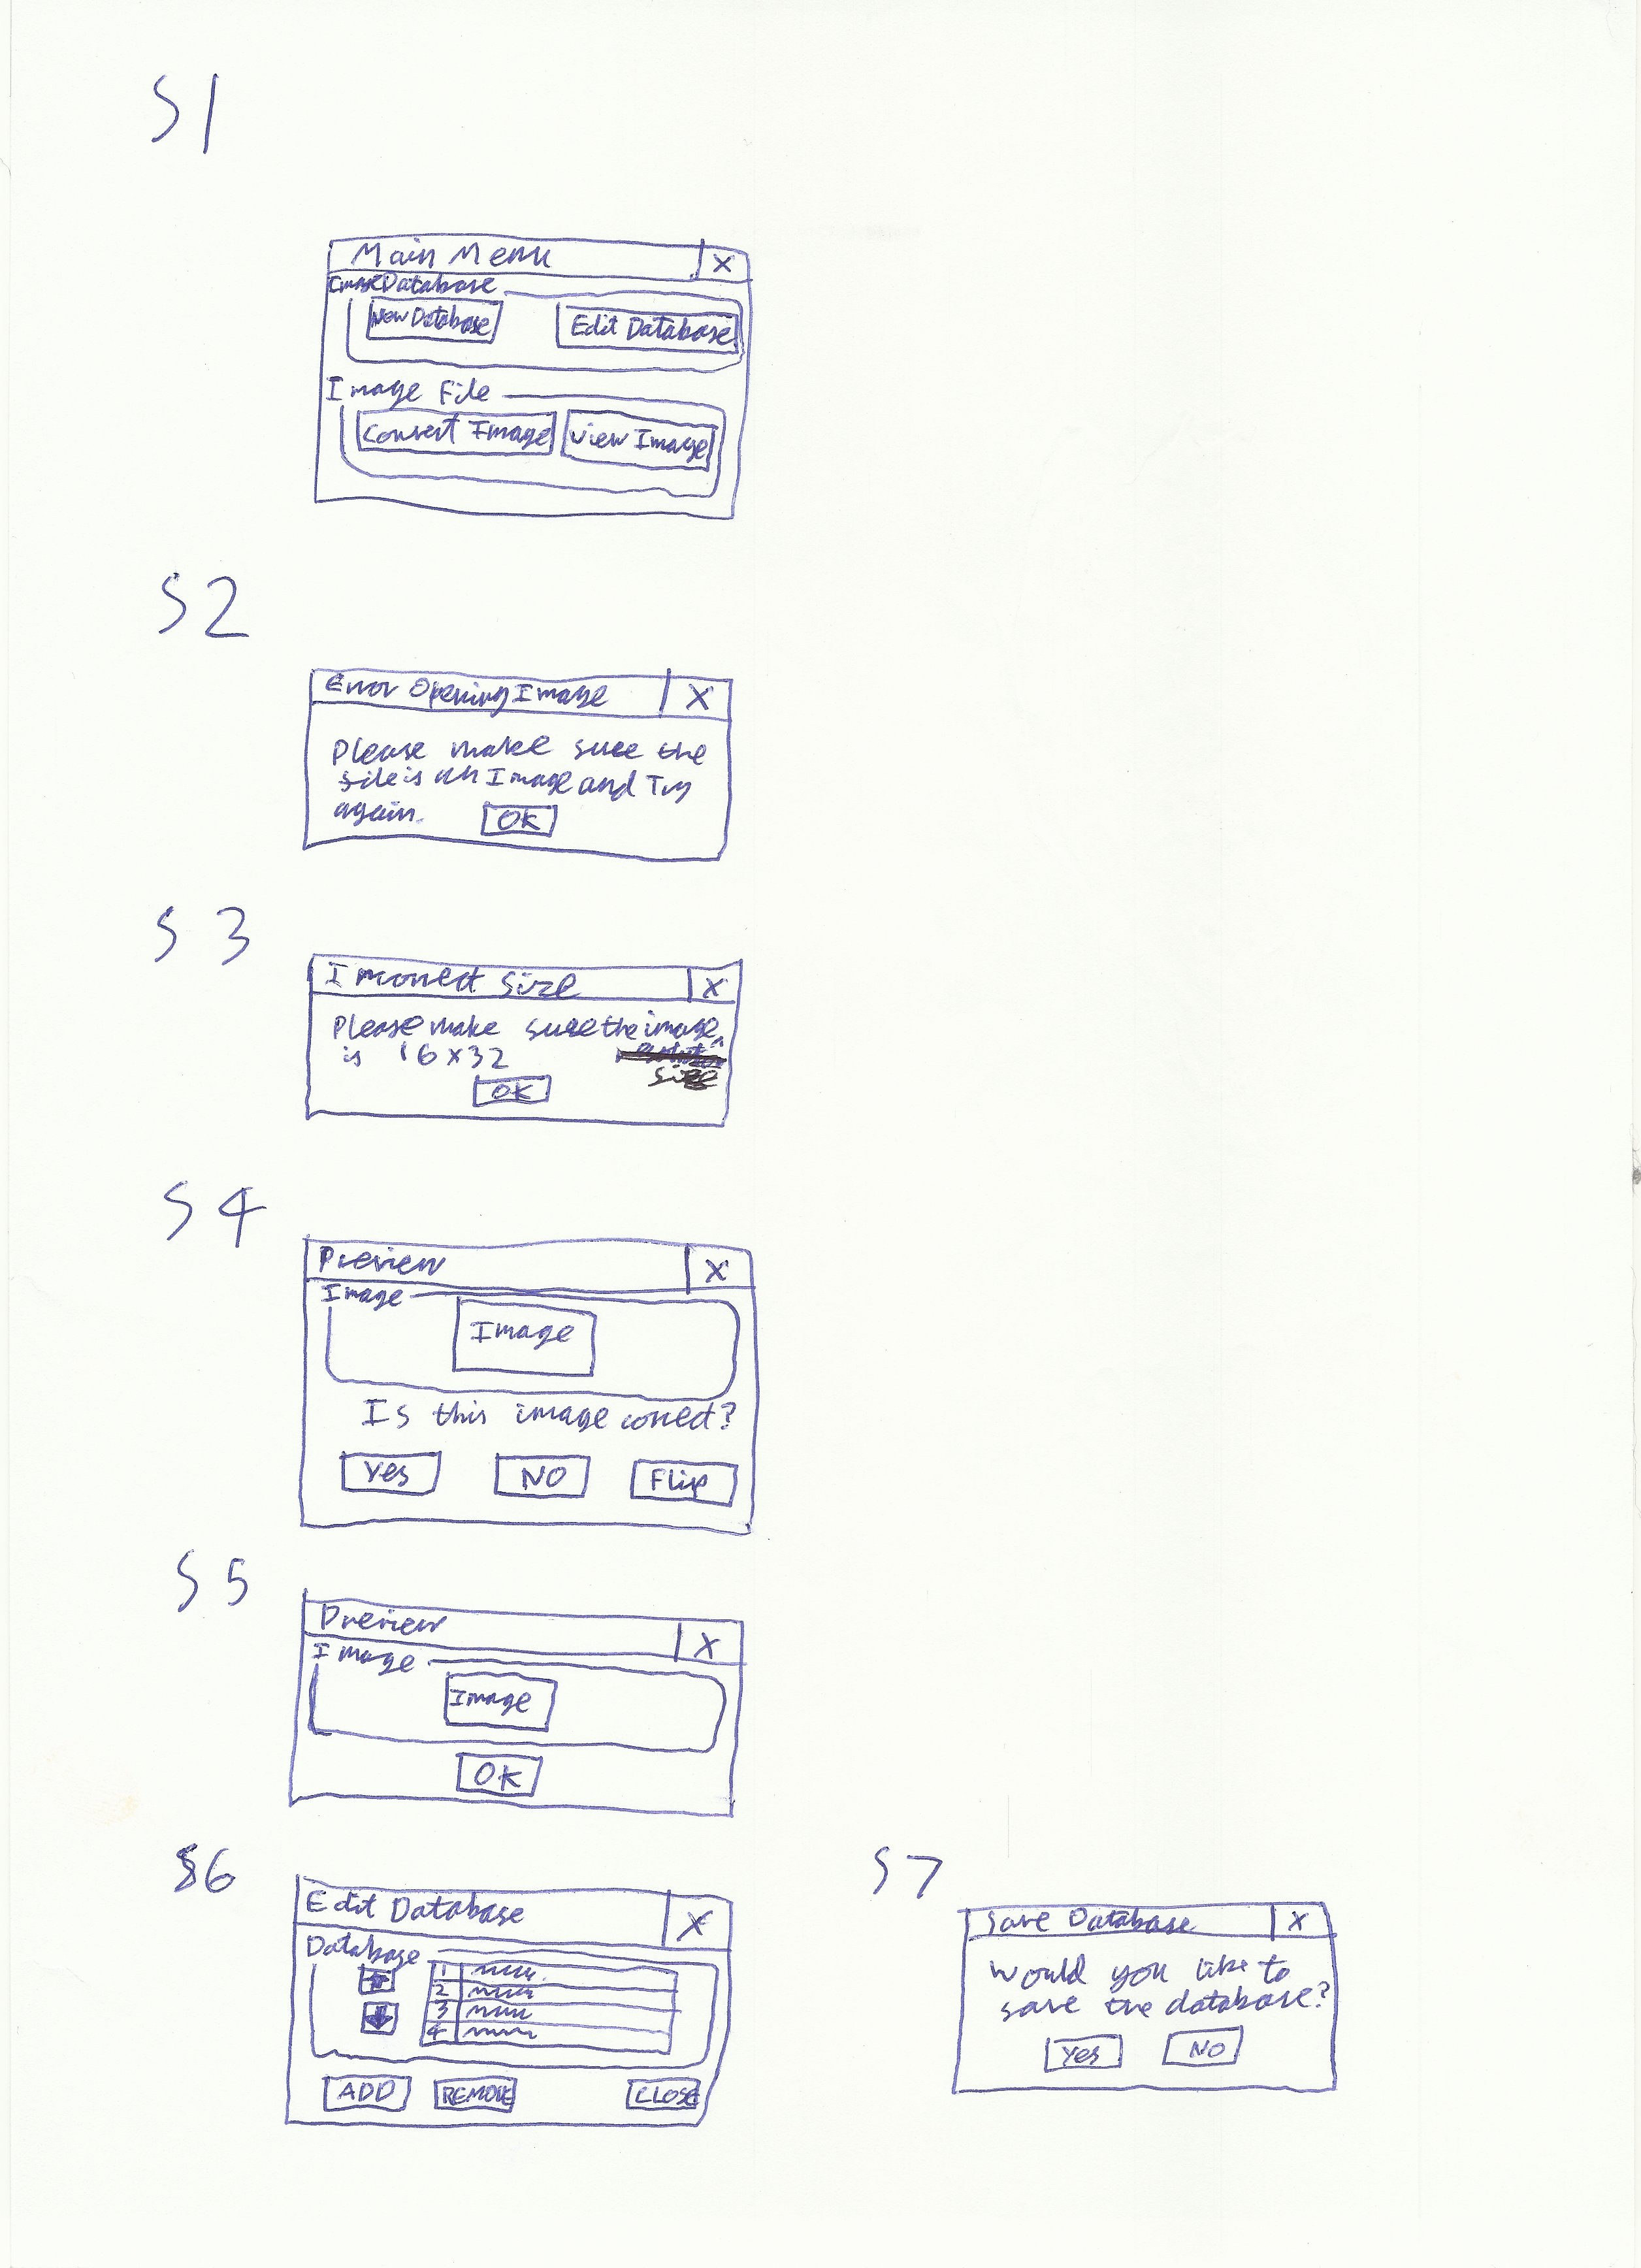 S1
Main Menu X
Image Database
New Database Edit Database
Image File
Convert Image View Image
S2
Error Opening Image X
Please make sure the
file is an Image and Try
again. OK
S3
Incorrect Size X
Please make sure the image
is 16x32
size
OK
S4
Preview X
Image
Image
Is this image correct?
Yes NO Flip
S5
Preview X
Image
Image
OK
S6
Edit Database X
Database
1
2
3
4
ADD REMOVE CLOSE
S7
Save Database X
Would you like to
save the database?
Yes NO